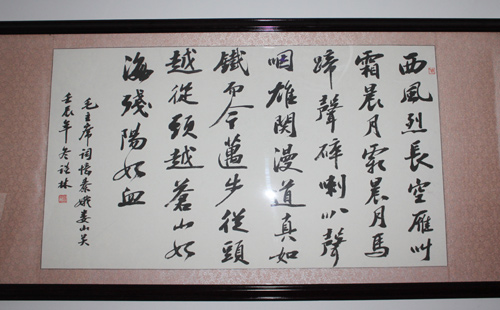 西風烈長空雁叫
霜晨月霜晨月馬
蹄聲碎喇叭聲
咽雄関漫道真如
鐵而今邁步從頭
越從頭越蒼山如
海殘陽如血
毛主席词憶秦娥娄山关
壬辰年冬